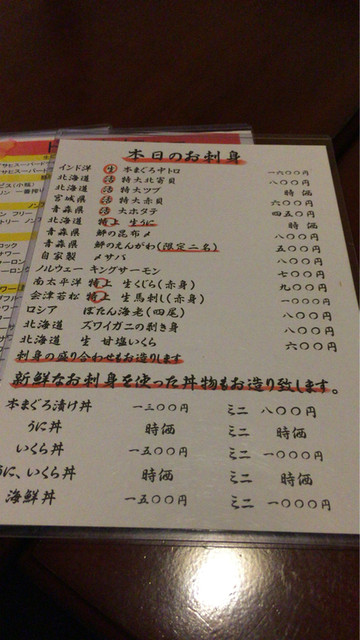 本日のお刺身
インド洋 生 本まぐろ中トロ 一六〇〇円
北海道 活 特大北寄貝 八〇〇円
北海道 活 特大ツブ 時価
宮城県 活 特大赤貝 六〇〇円
青森県 活 大ホタテ 四五〇円
北海道 特上 生うに 時価
青森県 鮃の昆布〆 八〇〇円
青森県 鮃のえんがわ(限定二名) 五〇〇円
自家製 〆サバ 七〇〇円
ノルウェー キングサーモン 九〇〇円
南太平洋 特上 生くじら(赤身) 一〇〇〇円
会津若松 特上 生馬刺し(赤身) 八〇〇円
ロシア ぼたん海老(四尾) 八〇〇円
北海道 ズワイガニの剥き身 六〇〇円
北海道 生 甘塩いくら
刺身の盛り合わせもお造りします
新鮮なお刺身を使った丼物もお造り致します。
本まぐろ漬け丼 一三〇〇円 ミニ 八〇〇円
うに丼 時価 ミニ 時価
いくら丼 一五〇〇円 ミニ 一〇〇〇円
うに、いくら丼 時価 ミニ 時価
海鮮丼 一五〇〇円 ミニ 一〇〇〇円